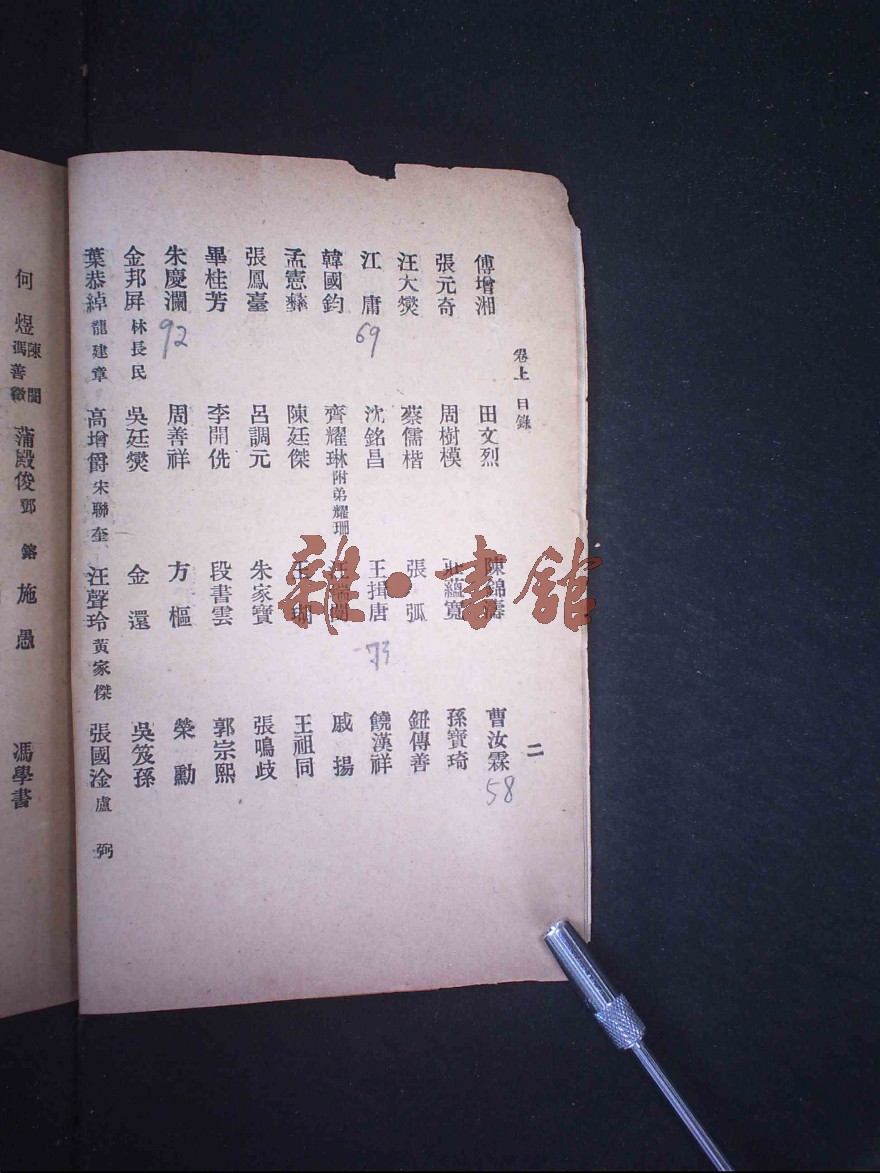 卷上 目錄 二
傅增湘 田文烈 陳錦濤 曹汝霖 58
張元奇 周樹模 莊蘊寬 孫寶琦
汪大燮 蔡儒楷 張弧 鈕傳善
江庸 69 沈銘昌 王揖唐 73 饒漢祥
韓國鈞 齊耀琳 附弟耀珊 汪瑞闓 戚揚
孟憲彝 陳廷傑 王瑚 王祖同
張鳳臺 呂調元 朱家寶 張鳴歧
畢桂芳 李開侁 段書雲 郭宗熙
朱慶瀾 92 周善祥 方樞 榮勳
金邦屏 林長民 吳廷燮 金還 吳笈孫
葉恭綽 龍建章 高增爵 宋聯奎 汪聲玲 黃家傑 張國淦 盧弼
何煜 陳閩 馮善徵 蒲殿俊 鄧鎔 施愚 馮學書
雜·書館